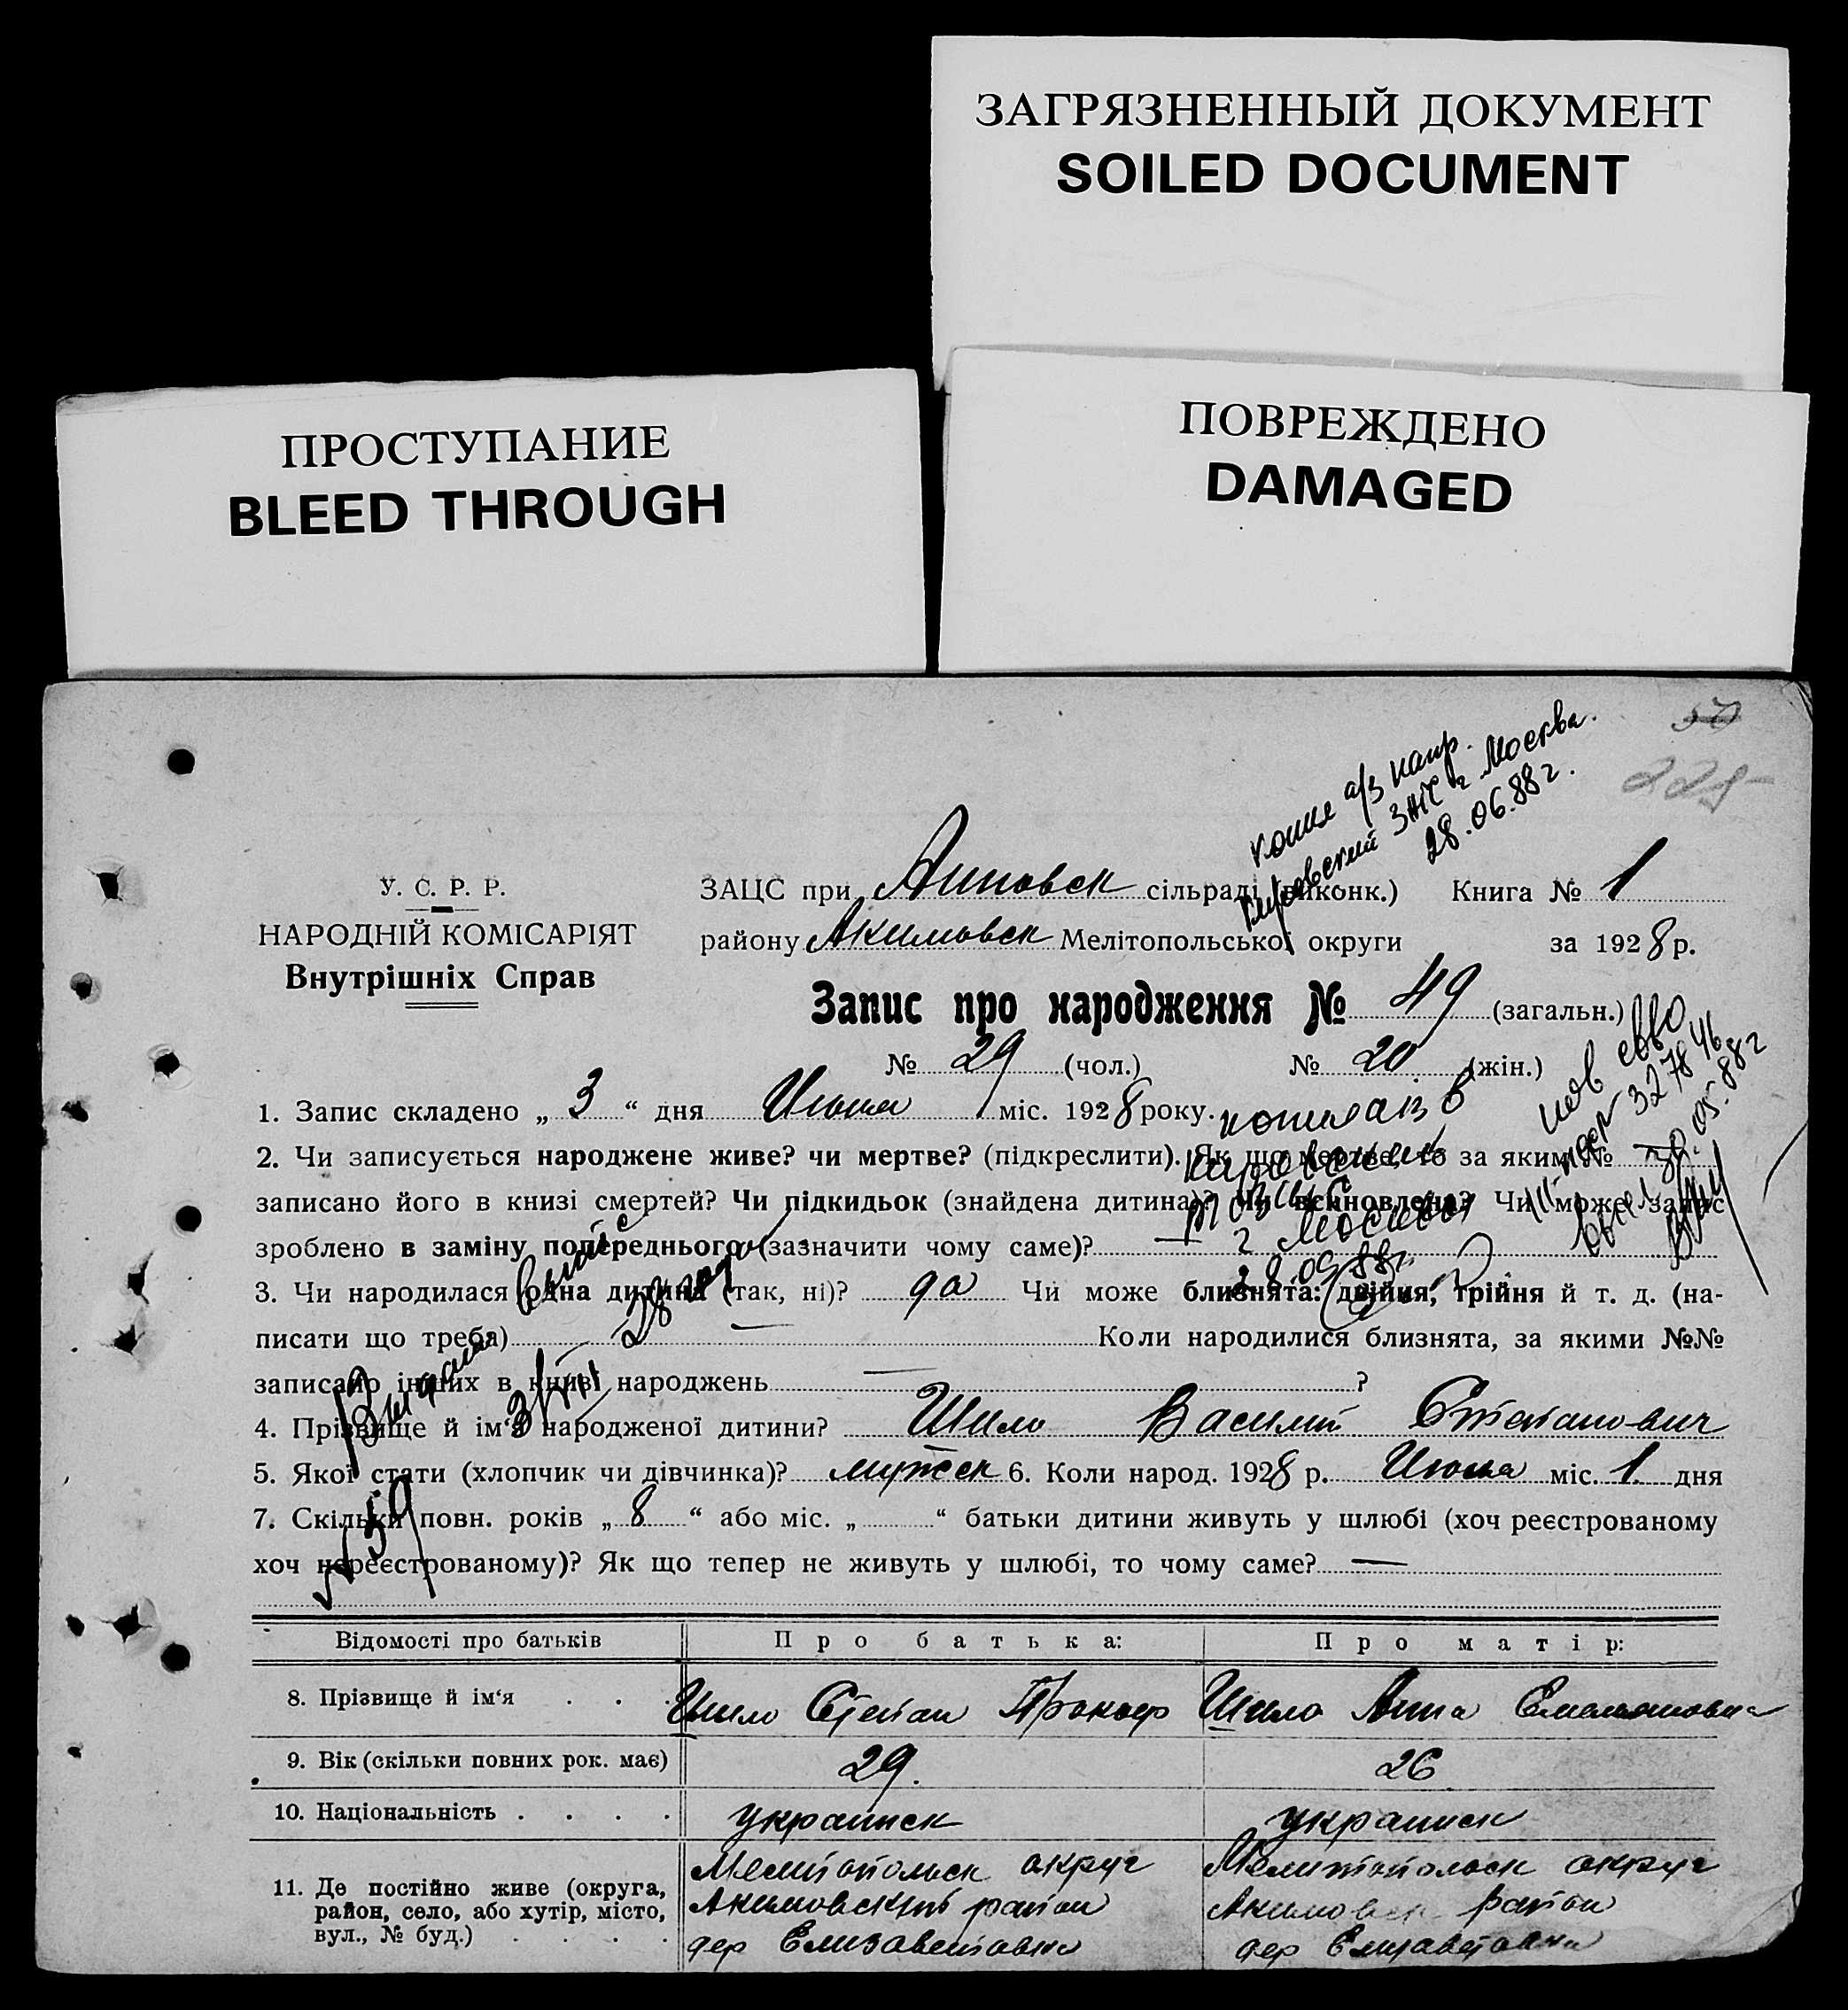 ЗАГРЯЗНЕННЫЙ ДОКУМЕНТ
SOILED DOCUMENT
ПРОСТУПАНИЕ
BLEED THROUGH
ПОВРЕЖДЕНО
DAMAGED
50
225
копия а/з напр.
Кировский ЗАГС г Москва.
28.06.88 г.
У. С. Р. Р.
НАРОДНІЙ КОМІСАРІЯТ
Внутрішніх Справ
ЗАЦС при сільраді (виконк.) Книга № 1
району Акимовск Мелітопольської округи за 1928 р.
Запис про народження № 49 (загальн.)
№ 29 (чол.) № 20 (жін.)
1. Запис складено „ 3 “ дня Июня міс. 1928 року.
2. Чи записується народжене живе? чи мертве? (підкреслити). Як що мертве, то за яким №
записано його в книзі смертей? Чи підкидьок (знайдена дитина)? Чи всиновлена? Чи може запис
зроблено в заміну попереднього (зазначити чому саме)? —
копия а/з в
г Москвы
28.09.88 г.
327846
30.05.88 г
3. Чи народилася одна дитина (так, ні)? да Чи може близнята: двійня, трійня й т. д. (на-
писати що треба) — Коли народилися близнята, за якими №№
записано інших в книзі народжень — ?
4. Прізвище й ім‘я народженої дитини? Шило Василий Степанович
5. Якої стати (хлопчик чи дівчинка)? мужск 6. Коли народ. 1928 р. Июня міс. 1 дня
7. Скільки повн. років „ 8 “ або міс. „ “ батьки дитини живуть у шлюбі (хоч реєстрованому
хоч нереєстрованому)? Як що тепер не живуть у шлюбі, то чому саме? —
Выдана
№ 59
Відомості про батьків Про батька: Про матір:
8. Прізвище й ім‘я . . . Шило Степан Прокоф Шило Анна Емельяновна
9. Вік (скільки повних рок. має) 29. 26
10. Національність . . . . украинск украинск
11. Де постійно живе (округа, район, село, або хутір, місто, вул., № буд.) . . . .
Мелитопольск округ Мелитопольск округ
Акимовский район Акимовск район
дер Елизаветовка дер Елизаветовка